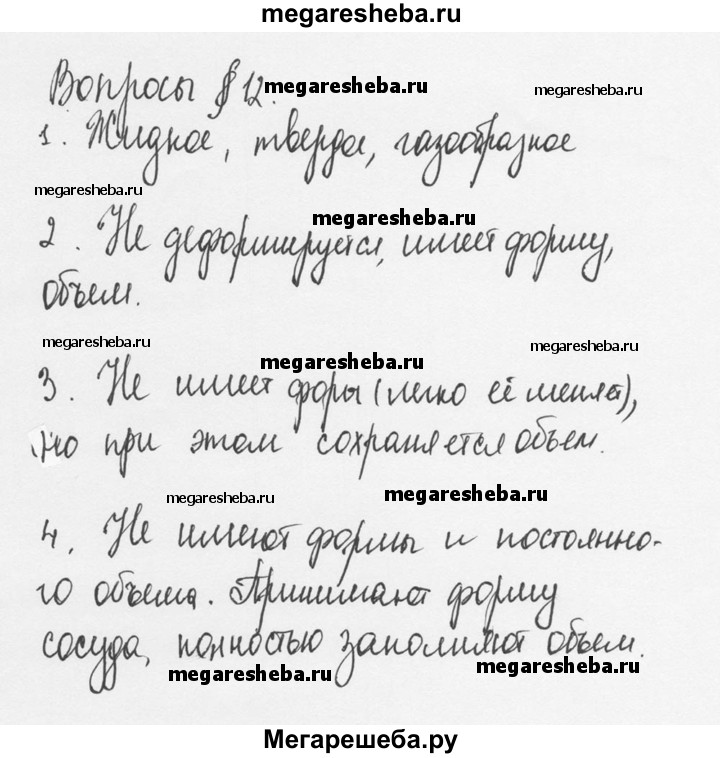 megaresheba.ru
Вопросы § 12. megaresheba.ru megaresheba.ru
1. Жидкое, твердое, газообразное
megaresheba.ru megaresheba.ru
2. Не деформируется, имеет форму,
объем.
megaresheba.ru megaresheba.ru megaresheba.ru
3. Не имеет форы (легко её меняет),
но при этом сохраняется объем.
megaresheba.ru megaresheba.ru
4. Не имеют формы и постоянно-
го объема. Принимают форму
сосуда, полностью заполняют объем.
megaresheba.ru megaresheba.ru
Мегарешеба.ру